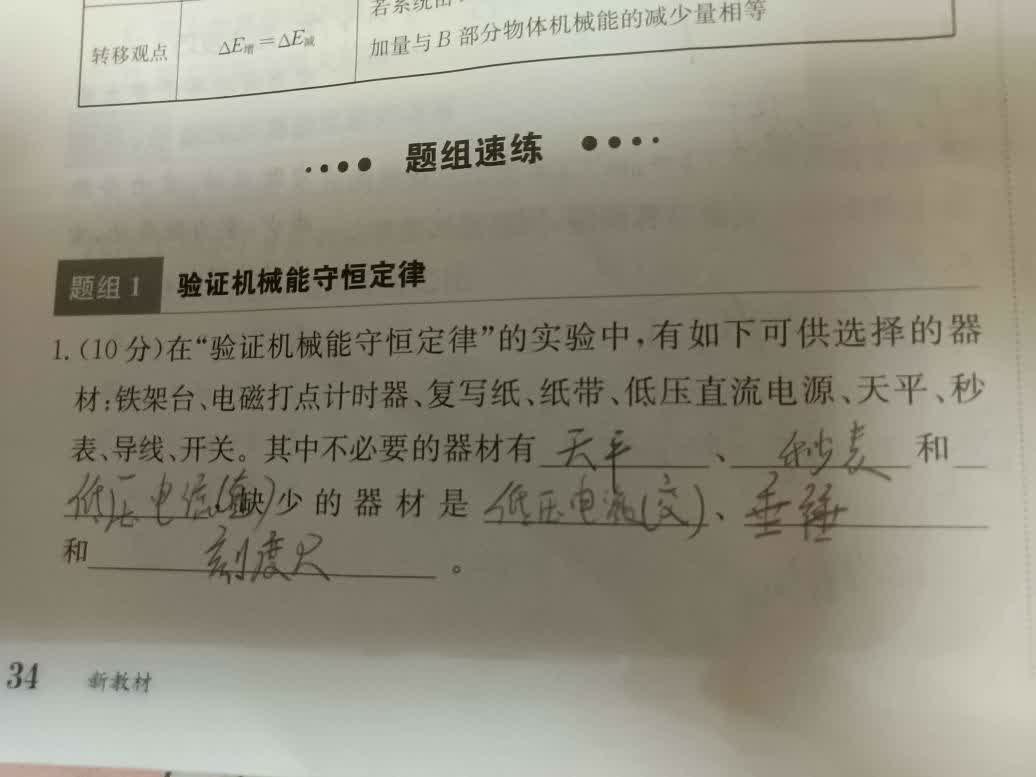 若系统由
转移观点 ΔE增=ΔE减 加量与B部分物体机械能的减少量相等
题组速练
题组1 验证机械能守恒定律
1.(10分)在“验证机械能守恒定律”的实验中,有如下可供选择的器
材:铁架台、电磁打点计时器、复写纸、纸带、低压直流电源、天平、秒
表、导线、开关。其中不必要的器材有 天平 、 秒表 和
低压电源(直) 缺少的器材是 低压电源(交) 、
和 刻度尺 。
34 新教材